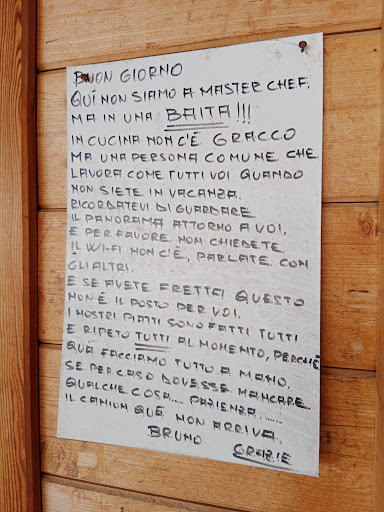 BUON GIORNO
QUÍ NON SIAMO A MASTER CHEF,
MA IN UNA BAITA!!!
IN CUCINA NON C'É GRACCO
MA UNA PERSONA COMUNE CHE
LAVORA COME TUTTI VOI QUANDO
NON SIETE IN VACANZA.
RICORDATEVI DI GUARDARE
IL PANORAMA ATTORNO A VOI,
E PER FAVORE NON CHIEDETE
IL WI-FI NON C'É, PARLATE CON
GLI ALTRI.
E SE AVETE FRETTA QUESTO
NON É IL POSTO PER VOI.
I NOSTRI PIATTI SONO FATTI TUTTI
E RIPETO TUTTI AL MOMENTO, PERCHÉ
QUÁ FACCIAMO TUTTO A MANO.
SE PER CASO DOVESSE MANCARE
QUALCHE COSA.... PAZIENZA.......
IL CAMION QUÁ NON ARRIVA.
BRUNO GRAZIE